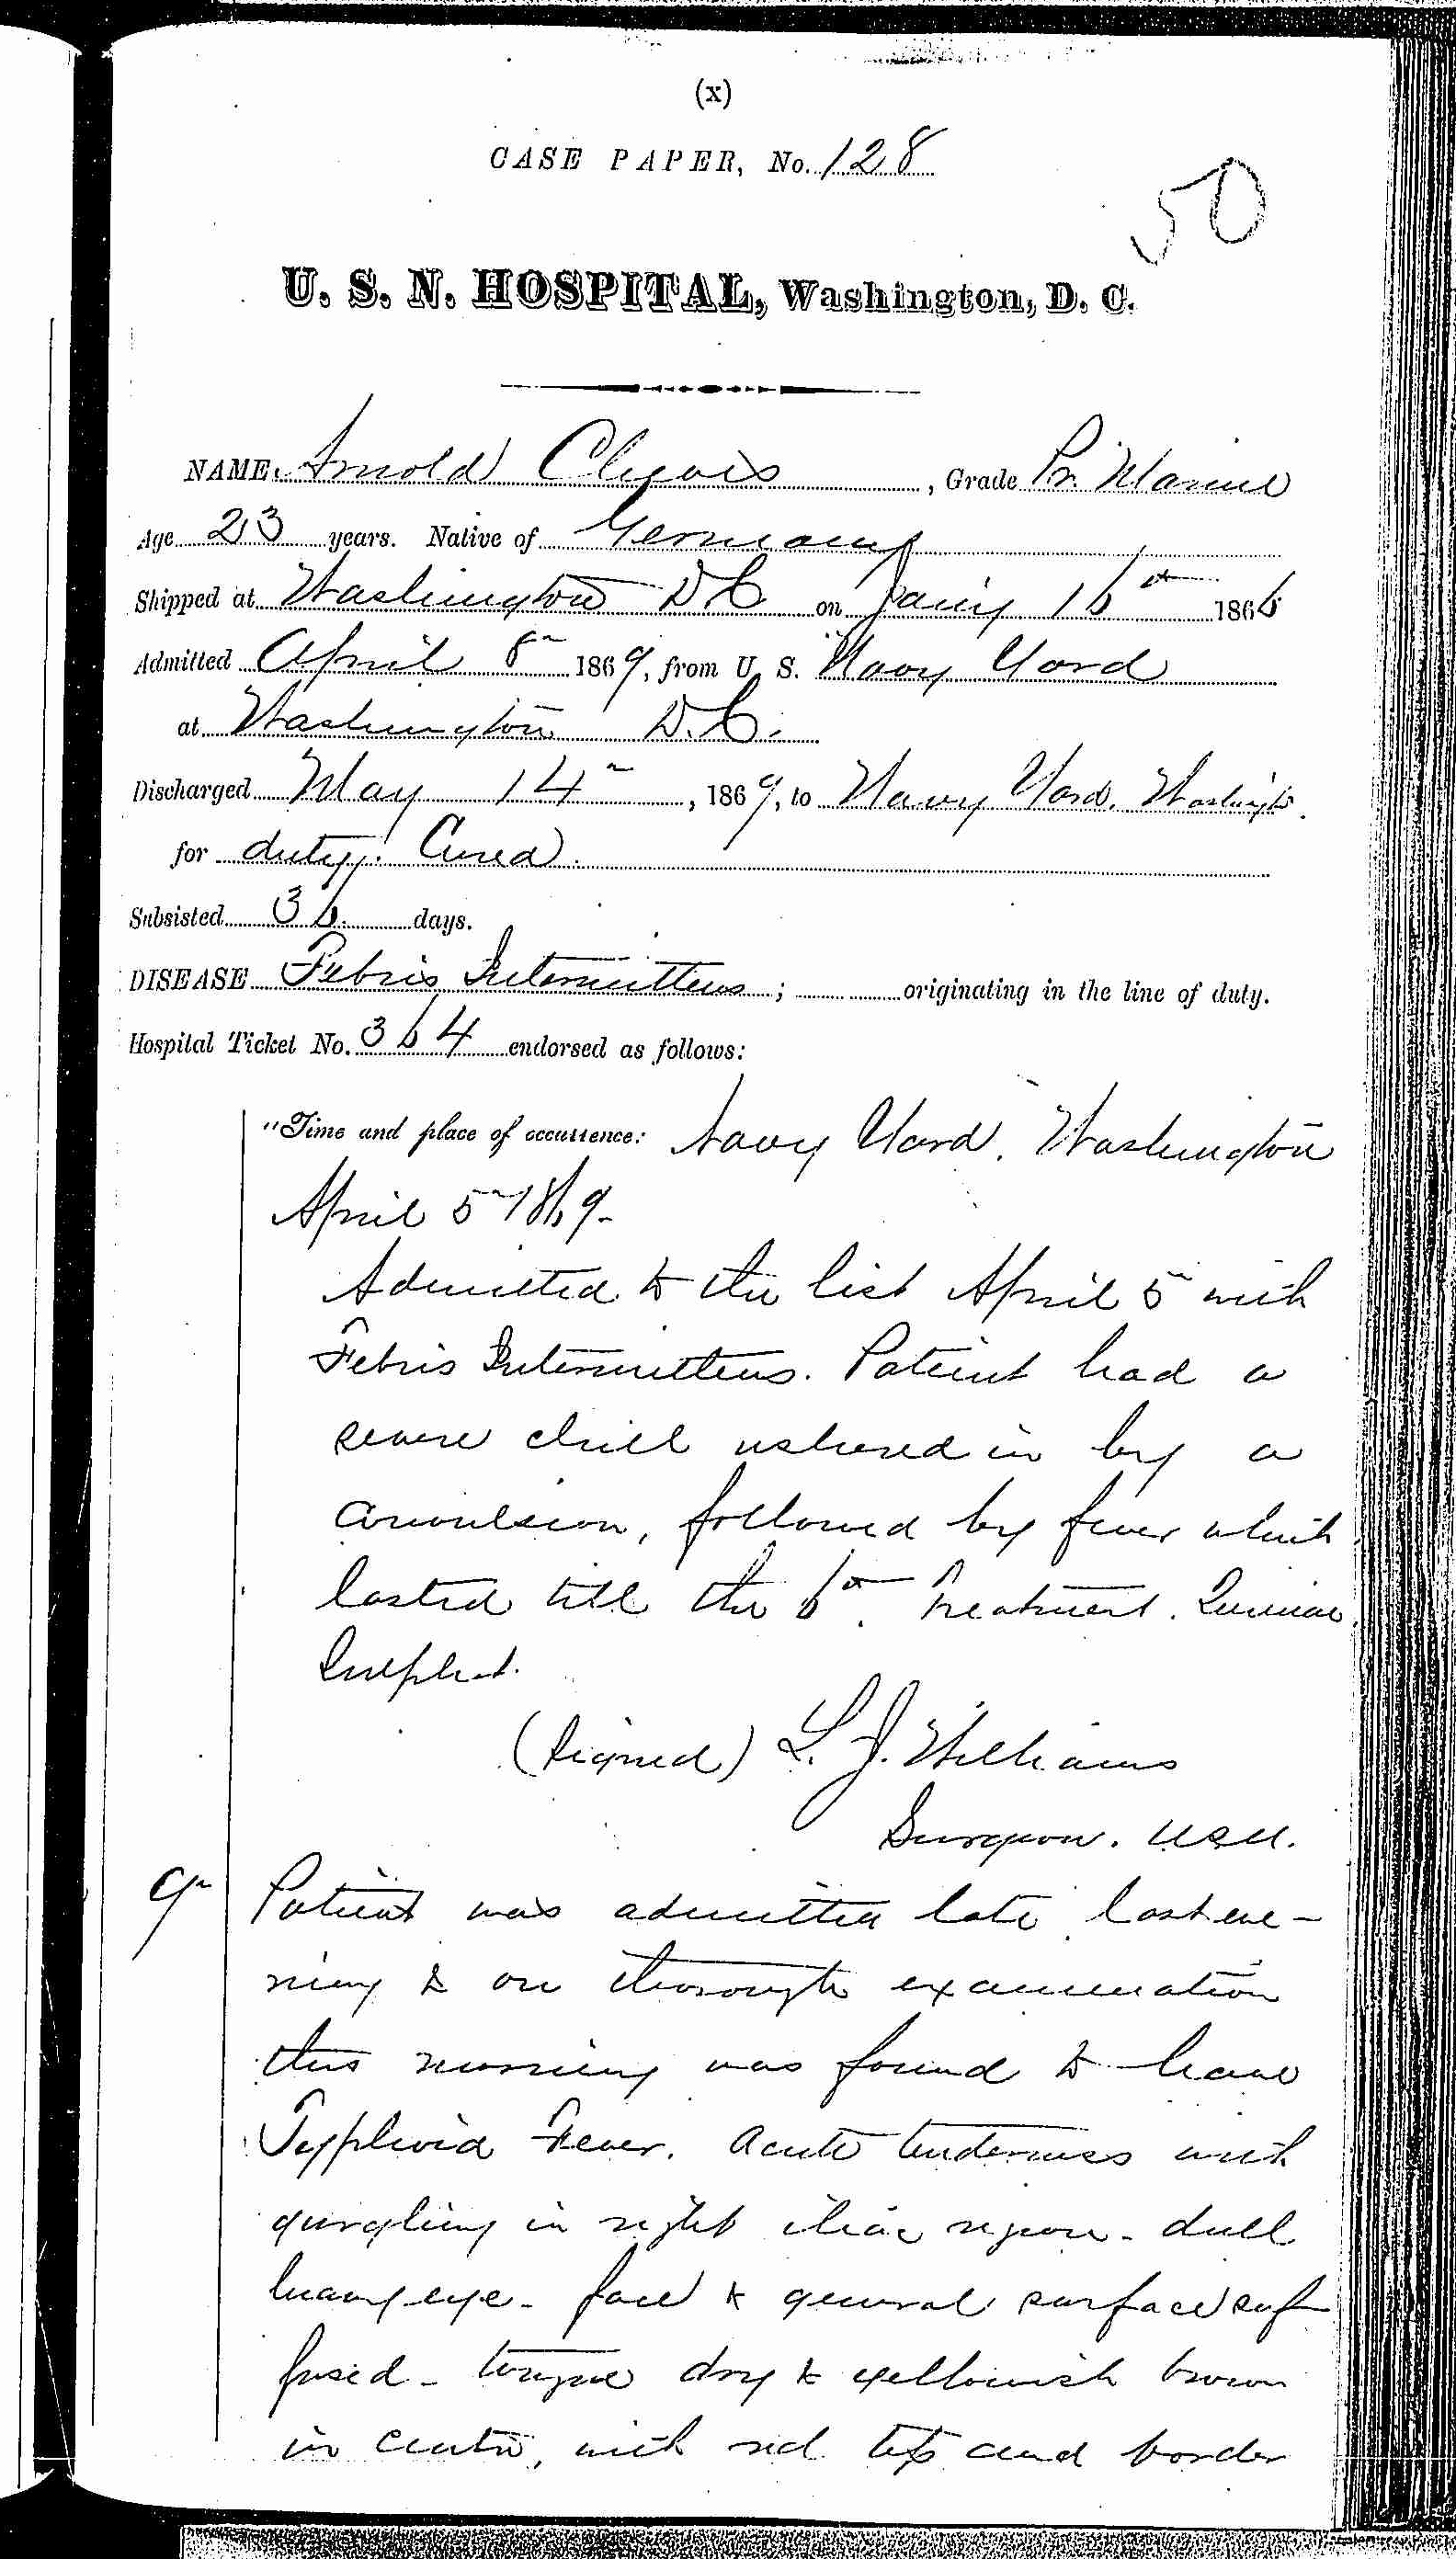 (x)
CASE PAPER, No. 128
50
U. S. N. HOSPITAL, Washington, D. C.
NAME, Arnold , Grade Pr. Marine
Age 23 years. Native of Germany
Shipped at Washington D C on Jany 16th 1866
Admitted April 8th 1869, from U. S. Navy Yard
at Washington D. C.
Discharged May 14th, 1869, to Navy Yard. Washington.
for duty. Cured.
Subsisted 36 days.
DISEASE Febris Intermittens ; originating in the line of duty.
Hospital Ticket No. 364 endorsed as follows:
"Time and place of occurrence: Navy Yard. Washington
April 5th 1869-
Admitted to the list April 5th with
Febris Intermittens. Patient had a
severe chill ushered in by a
convulsion, followed by fever which
lasted till the 6th. Treatment. Quiniae
Sulphat.
(Signed) L. J. Williams
Surgeon. USN.
9th Patient was admitted late last eve-
ning & on thorough examination
this morning was found to have
Typhoid Fever. Acute tenderness with
gurgling in right iliac region - dull
heavy eye - face & general surface suf
fused - tongue dry & yellowish brown
in centre, with red tip and border